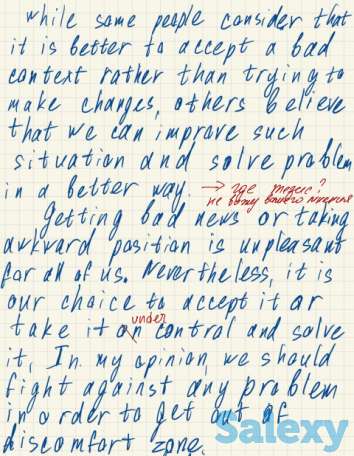 while some people consider that
it is better to accept a bad
context rather than trying to
make changes, others believe
that we can improve such
situation and solve problem
in a better way. → где тезис?
не вижу вашего мнения
Getting bad news or taking
awkvard position is unpleasant
for all of us. Nevertheless, it is
our choice to accept it or
under
take it on control and solve
it. In my opinion, we should
fight against any problem
in order to get out of
discomfort zone.
Salexy